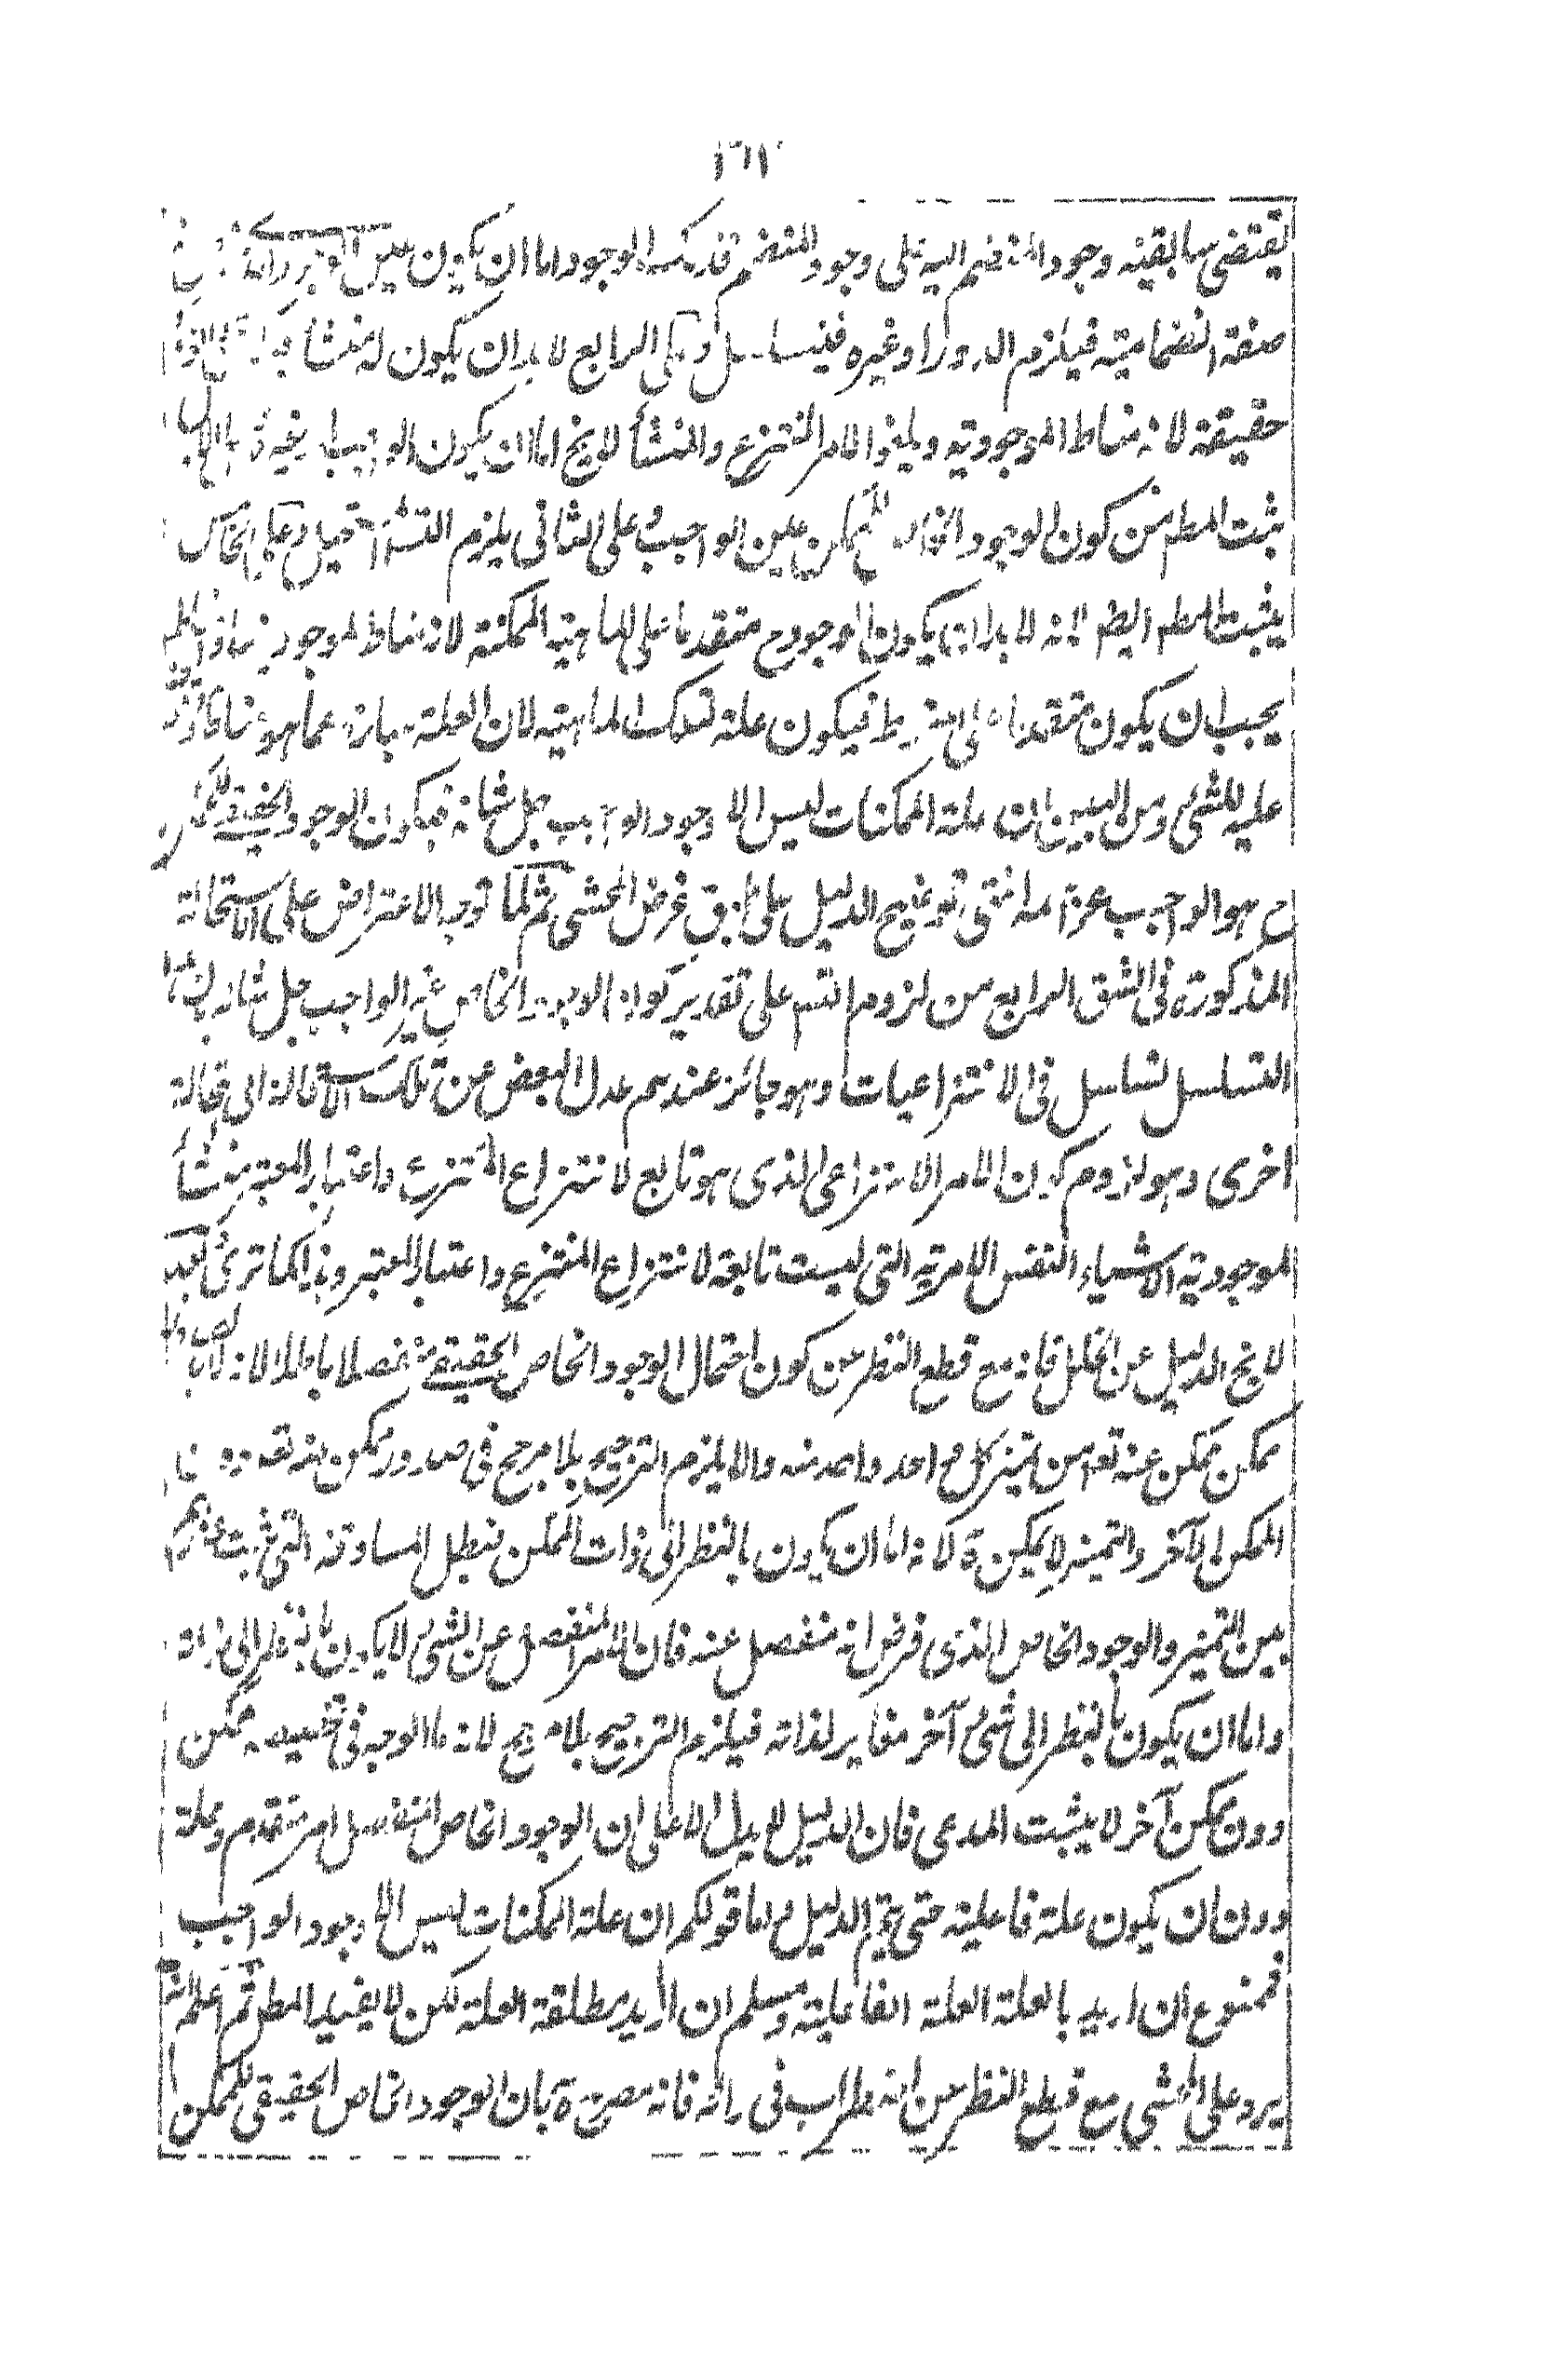 يقتضى سابقية وجود المنضم اليه على وجود المنضم فذلك الوجود اما ان يكون عين
صفة انضمامية فيلزم الدور او غيره فيتسلسل وعلى الرابع لا بد ان يكون له منشأ
حقيقة لانه مناط الموجودية ويلغو الامر المنتزع والمنشأ لا يخ اما ان يكون الواجب او غيره
يثبت المطم من كون الوجود الخاص للممكن عين الواجب وعلى الثانى يلزم التسلسل المستحيل وعلى الخامس
يثبت المطم ايضم لانه لا بد ان يكون الوجود ح متقدما على الماهية الممكنة لانه مناط الموجودية
يجب ان يكون متقدما على المنوط فيكون علة لتلك الماهية لان العلة عبارة عما هو
عليه للشئ ومن البين ان علة الممكنات ليس الا وجود الواجب جل شانه فيكون الوجود الحقيقى للممكن
ح هو الواجب عز اسمه انتهى توضيح الدليل على طبق غرض المحشى ثم لما توجه الاعتراض على الاستحالة
المذكورة فى الشق الرابع من لزوم التسم على تقدير كون الوجود الخاص غير الواجب جل شانه بان هذا
التسلسل تسلسل فى الانتزاعيات وهو جائز عندهم عدل البعض عن تلك الاستحالة الى استحالة
اخرى وهو لزوم كون الامر الانتزاعى الذى هو تابع لانتزاع المنتزع واعتبار المعتبر منشأ
لموجودية الاشياء النفس الامرية التى ليست تابعة لانتزاع المنتزع واعتبار المعتبر وهذا كما ترى بعد
لا يخ الدليل عن الخلل فانه مع قطع النظر عن كون احتمال الوجود الخاص الحقيقى منفصلا باطلا لانه لا بد
ممكن ممكن عنه تعم من تميز كل واحد واحد منه والا يلزم الترجيح بلا مرجح فى صدور ممكن منه تعم دون
الممكن الآخر والتميز لا يمكن ة لانه اما ان يكون بالنظر الى ذات الممكن فبطل المساوقة التى ثبت عندهم
بين التميز والوجود الخاص الذى فرض انه منفصل عنه فان الامر المنفصل عن الشئ لا يكون بالنظر الى ذاته
واما ان يكون بالنظر الى شئ آخر مغاير لذاته فيلزم الترجيح بلا مرجح لانه ما الوجه فى تخصيصه بممكن
دون ممكن آخر لا يثبت المدعى فان الدليل لم يدل الا على ان الوجود الخاص المنفصل امر متقدم وعلة
دون ان يكون علة فاعلية حتى يتم الدليل واما قولكم ان علة الممكنات ليس الا وجود الواجب
فممنوع ان اريد بالعلة العلة الفاعلية ومسلم ان اريد مطلقة العلة لكن لا يفيد المطم ثم اعلم انه
يرد على المحشى مع قطع النظر عن انه اضطراب فى رائه فانه مصرح ة بان الوجود الخاص الحقيقى للممكن